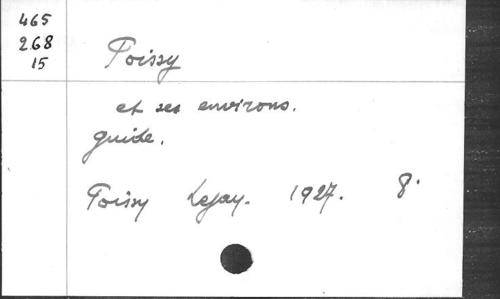 465
268
15
Poissy
et ses environs.
guide.
Poissy Lejay. 1927. 8°